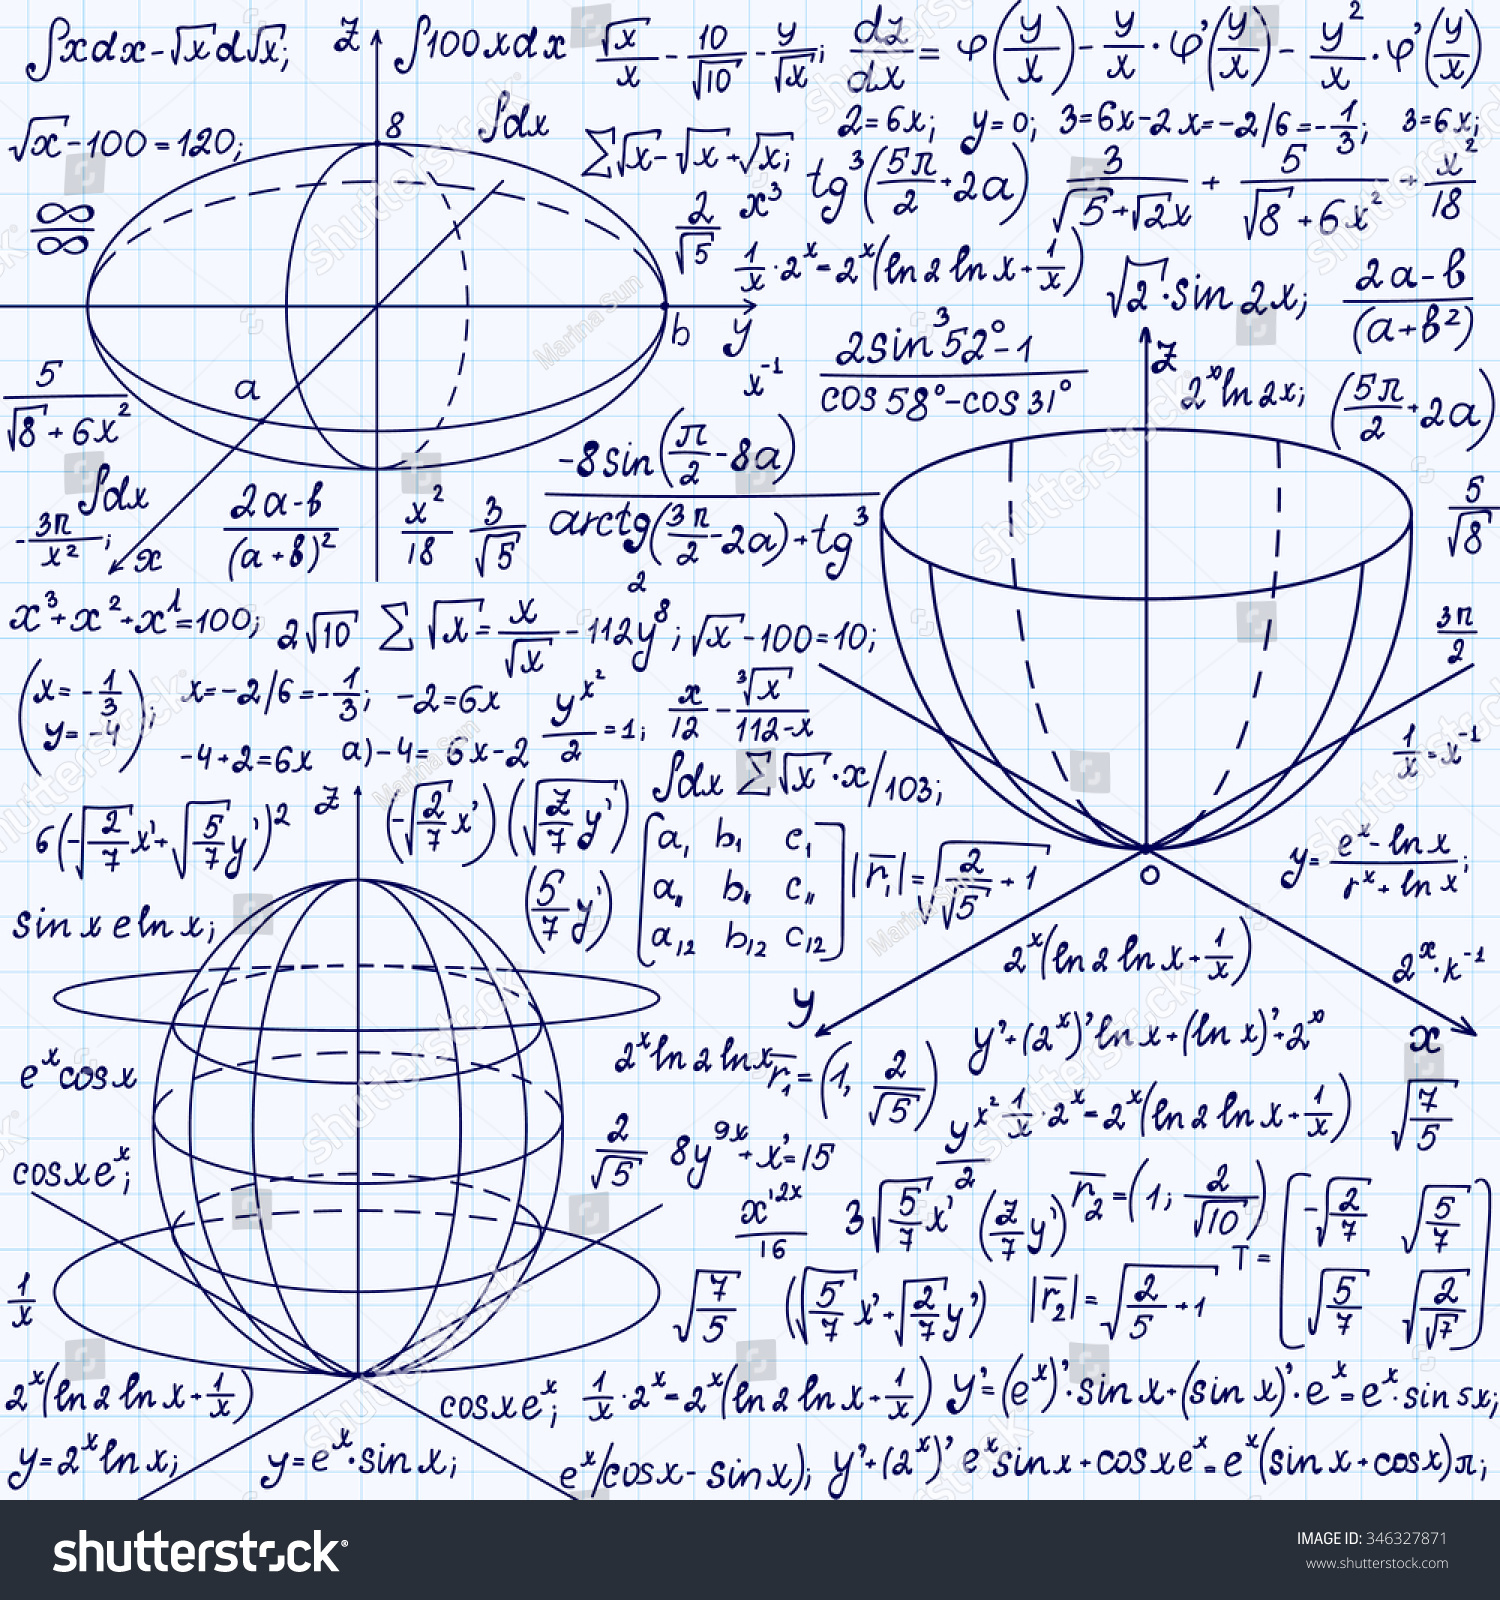 ∫xdx-√x d√x; z ∫100xdx √x/x - 10/√10 - y/√x; dz/dx = φ(y/x) - y/x · φ'(y/x) - y²/x · φ'(y/x)
√x-100=120; 8 ∫dx ∑√x-√x+√x; 2=6x; y=0; 3=6x-2 x=-2/6=-1/3; 3=6x;
∞/∞ 2/√5 x³ tg³(5π/2+2a) 3/(√5+√2x) + 5/(√8+6x²) + x²/18
1/x·2ˣ=2ˣ(ln2 ln x+1/x) √2·sin2x; (2a-b)/(a+b²)
b y x⁻¹ (2sin³52°-1)/(cos58°-cos31°) z 2ˣln2x; (5π/2+2a)
5/(√8+6x²) a
-8sin(π/2-8a)/(arctg(3π/2-2a)+tg³ 2)
∫dx -3π/x²; x (2a-b)/(a+b)² x²/18 3/√5 5/√8
x³+x²+x¹=100; 2√10 ∑√x=x/√x-112y⁸; √x-100=10; 3π/2
(x=-1/3 y=-4); x=-2/6=-1/3; -2=6x y^x²/2=1; x/12-∛x/(112-x)
-4+2=6x a)-4=6x-2 ∫dx ∑√x·x/103; 1/x=x⁻¹
6(-√(2/7)x'+√(5/7)y')² z (-√(2/7)x')(√(z/7)y')
a₁ b₁ c₁
a,, b,, c,,
a₁₂ b₁₂ c₁₂
|r₁|=√(2/√5+1) O y=(eˣ-ln x)/(rˣ+ln x);
sin x e ln x; (5/7 y') 2ˣ(ln2 ln x+1/x) 2ˣ·k⁻¹
y y'+(2ˣ)'ln x+(ln x)'+2ˣ x
eˣcosx 2ˣln2lnx r₁=(1, 2/√5) y^x²/2 1/x·2ˣ=2ˣ(ln2 ln x+1/x) √(7/5)
cosxeˣ; 2/√5 8y⁹ˣ+x'=15
x'²ˣ/16 3√(5/7)x'² (z/7 y') r₂=(1; 2/√10) T= -√(2/7) √(5/7)
1/x √(7/5) (√(5/7)x'+√(2/7)y') |r₂|=√(2/5+1) √(5/7) √(2/√7)
2ˣ(ln2 ln x+1/x) cosxeˣ; 1/x·2ˣ=2ˣ(ln2 ln x+1/x) y'=(eˣ)'·sin x+(sin x)'·eˣ=eˣ·sin5x;
y=2ˣln x; y=eˣ·sin x; eˣ/cosx-sin x); y'+(2ˣ)' eˣsinx+cosxeˣ=eˣ(sin x+cosx)π;
shutterstock
IMAGE ID: 346327871
www.shutterstock.com
Marina Sun